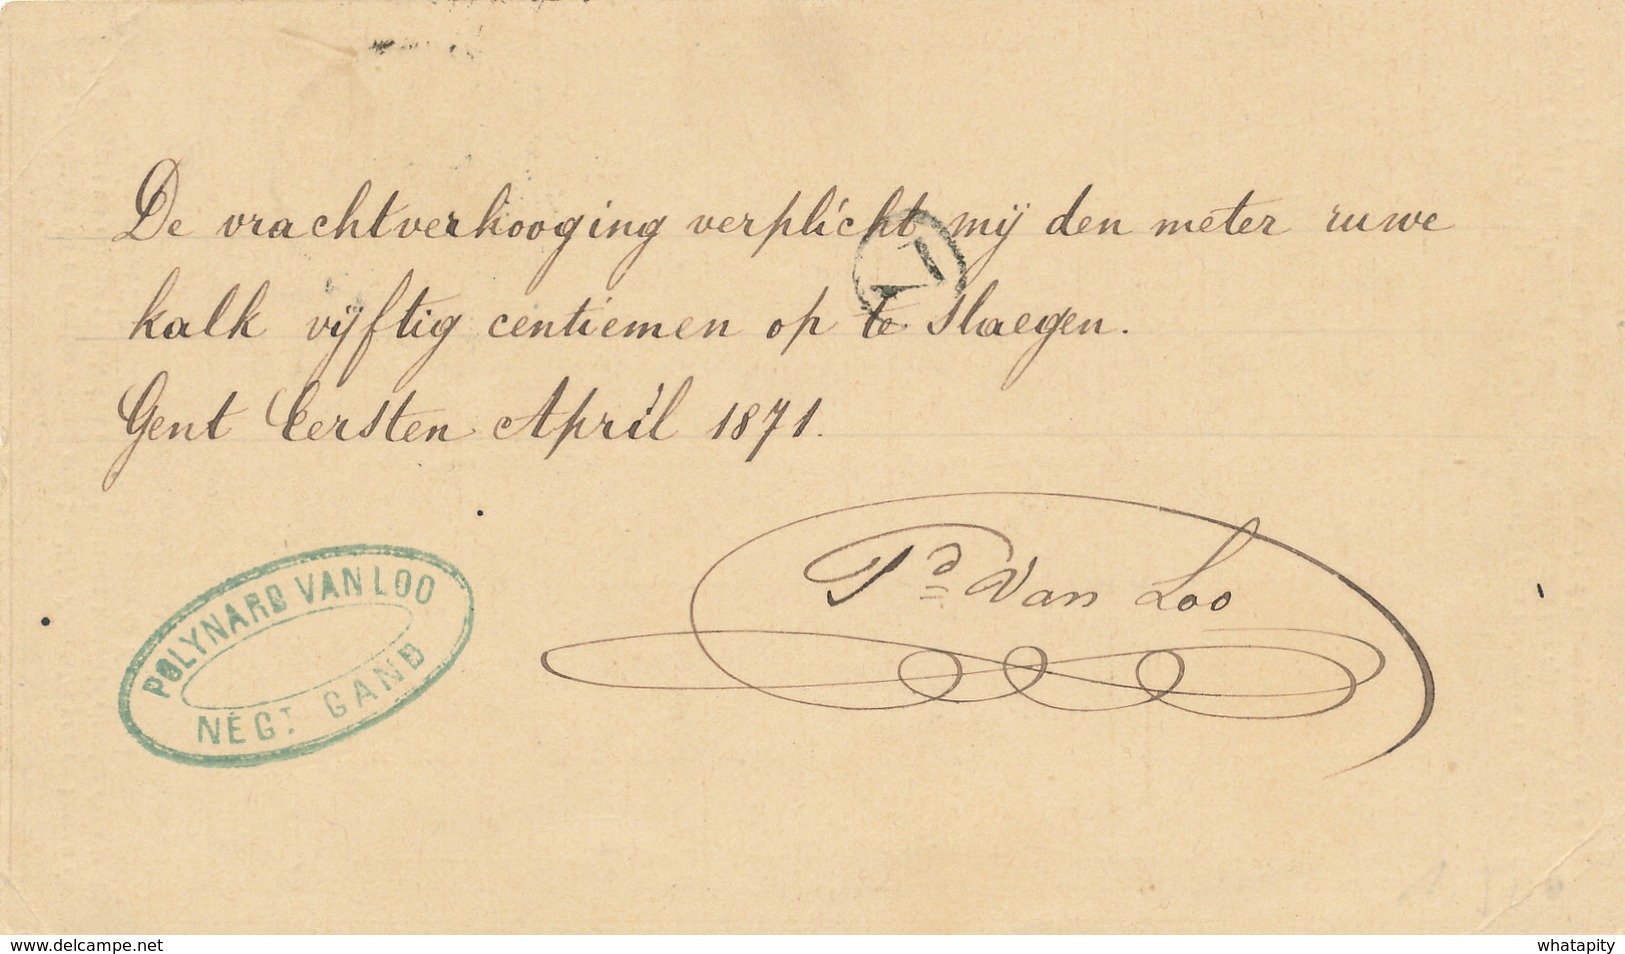 De vrachtverhooging verplicht mÿ den meter ruwe
kalk vÿftig centiemen op te slaegen.
Gent Eersten April 1871.
Pd Van Loo
POLYNARD VAN LOO
NÉGT GAND
www.delcampe.net
whatapity